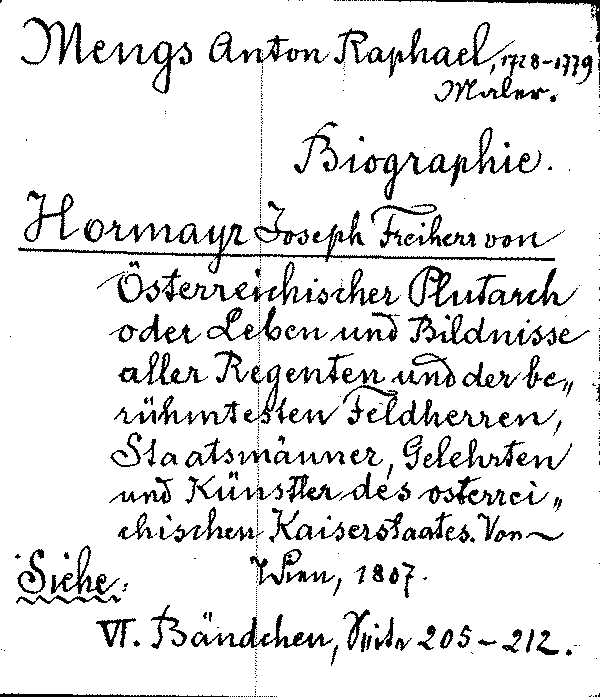 Mengs Anton Raphael, 1728-1779
Maler.
Biographie.
Hormayr Joseph Freiherr von
Österreichischer Plutarch
oder Leben und Bildnisse
aller Regenten und der be„
rühmtesten Feldherren,
Staatsmänner, Gelehrten
und Künstler des österrei„
chischen Kaiserstaates. Von ~
Wien, 1807.
Siehe:
VI. Bändchen, Seite 205-212.